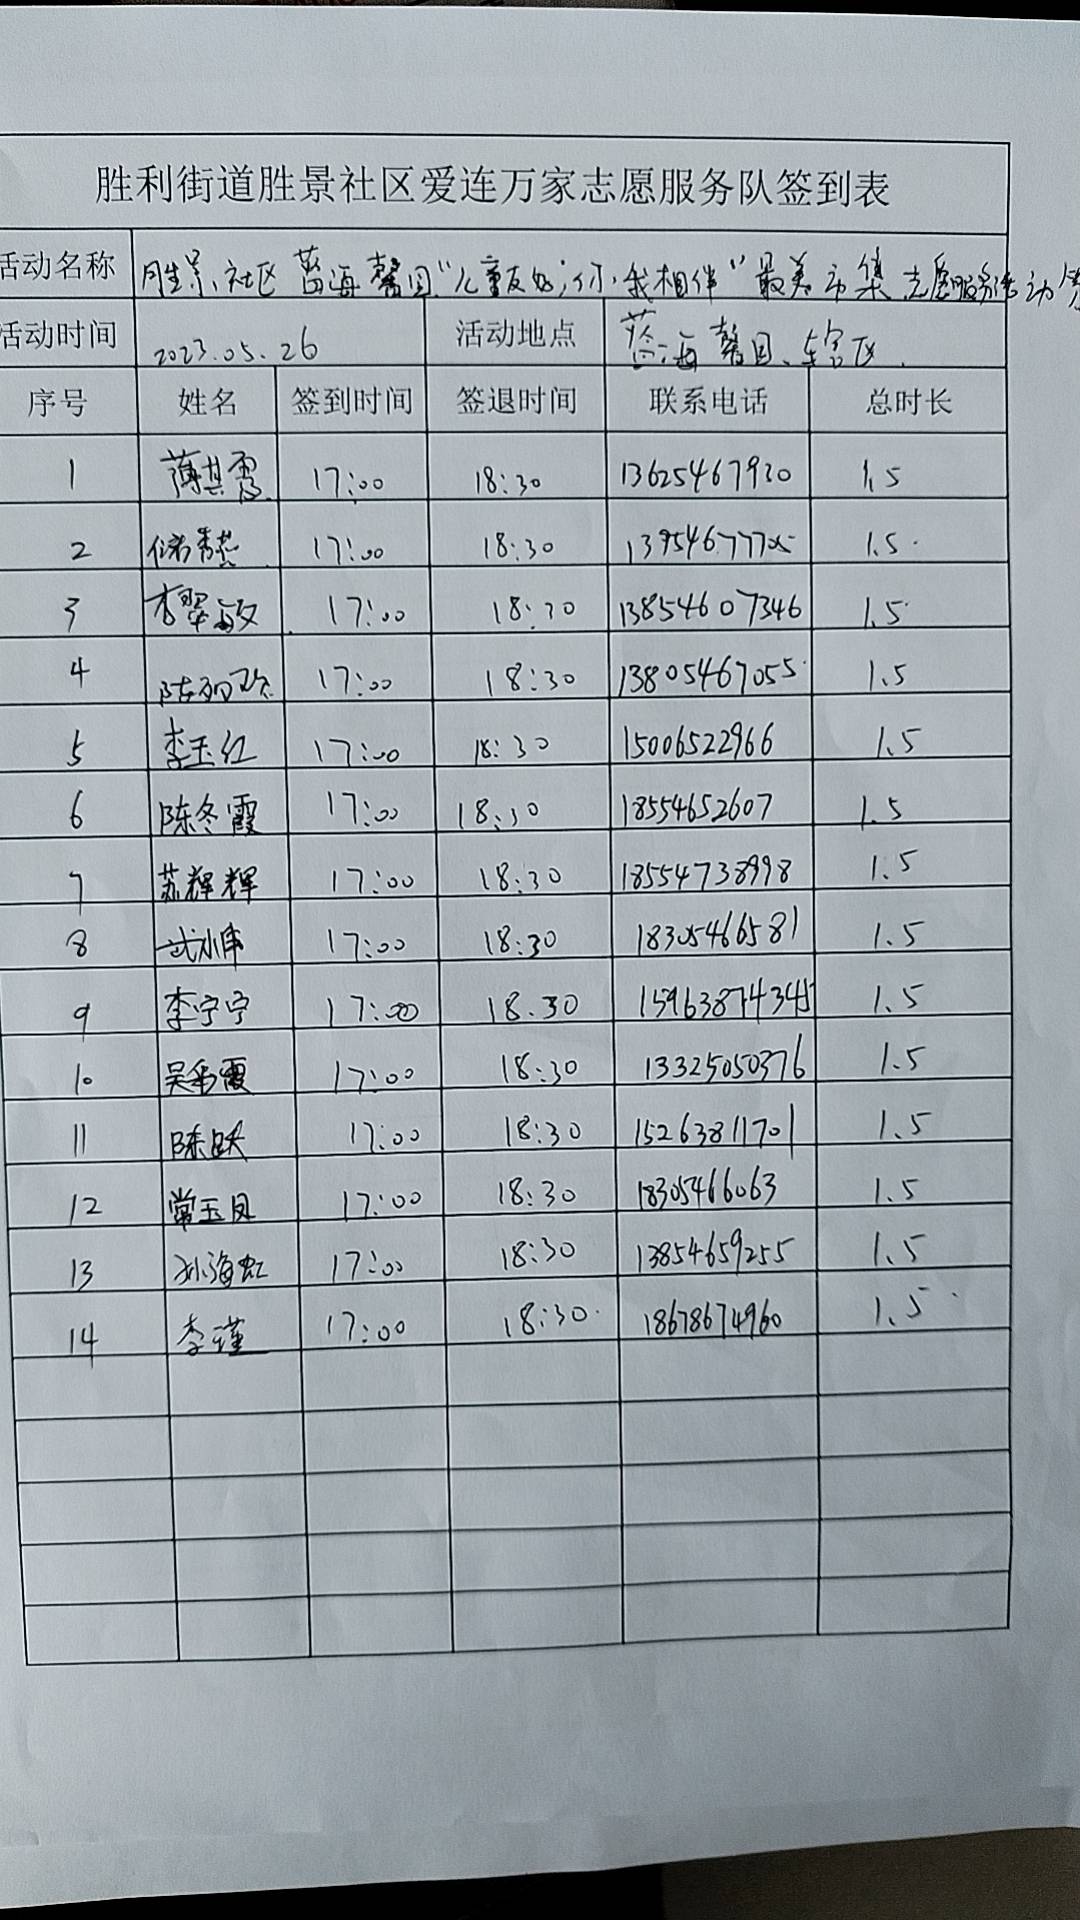 胜利街道胜景社区爱连万家志愿服务队签到表
活动名称 胜景社区蓝海馨园“儿童友好,你我相伴”最美市集志愿服务活动
活动时间 2023.05.26 活动地点 蓝海馨园、辖区
序号 姓名 签到时间 签退时间 联系电话 总时长
1 薄其霞 17:00 18:30 13625467920 1.5
2 储秀燕 17:00 18:30 1.5
3 李翠敏 17:00 18:30 13854607346 1.5
4 17:00 18:30 13805467055 1.5
5 李玉红 17:00 18:30 15006522966 1.5
6 陈冬霞 17:00 18:30 18554652607 1.5
7 苏辉辉 17:00 18:30 18554738998 1.5
8 17:00 18:30 18305466581 1.5
9 李宁宁 17:00 18.30 15963874345 1.5
10 吴秀霞 17:00 18:30 13325050376 1.5
11 陈跃 17:00 18:30 15263811701 1.5
12 常玉凤 17:00 18:30 18305466063 1.5
13 孙海虹 17:00 18:30 13854659255 1.5
14 李瑾 17:00 18:30 18678674960 1.5